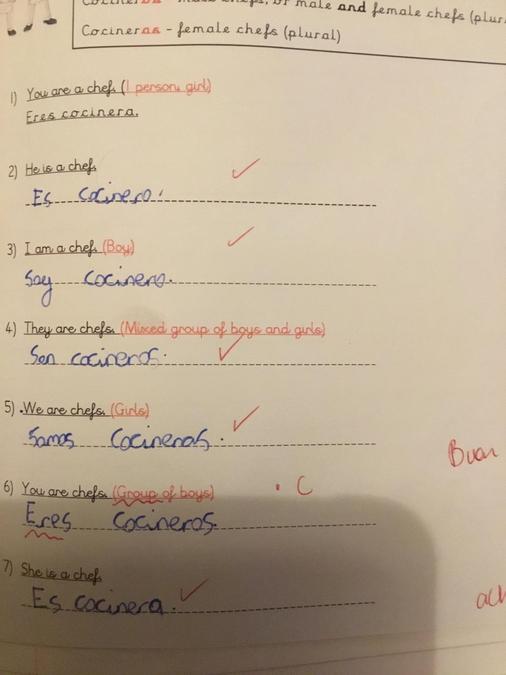 male and female chefs (plur
Cocineras - female chefs (plural)
1) You are a chef. (1 person, girl)
Eres cocinera.
2) He is a chef.
Es cocinero.
3) I am a chef. (Boy)
Soy cocinero.
4) They are chefs. (Mixed group of boys and girls)
Son cocineros.
5) .We are chefs. (Girls)
Somos cocineras.
Buen
6) You are chefs. (Group of boys)
. C
Eres cocineros.
7) She is a chef.
Es cocinera.